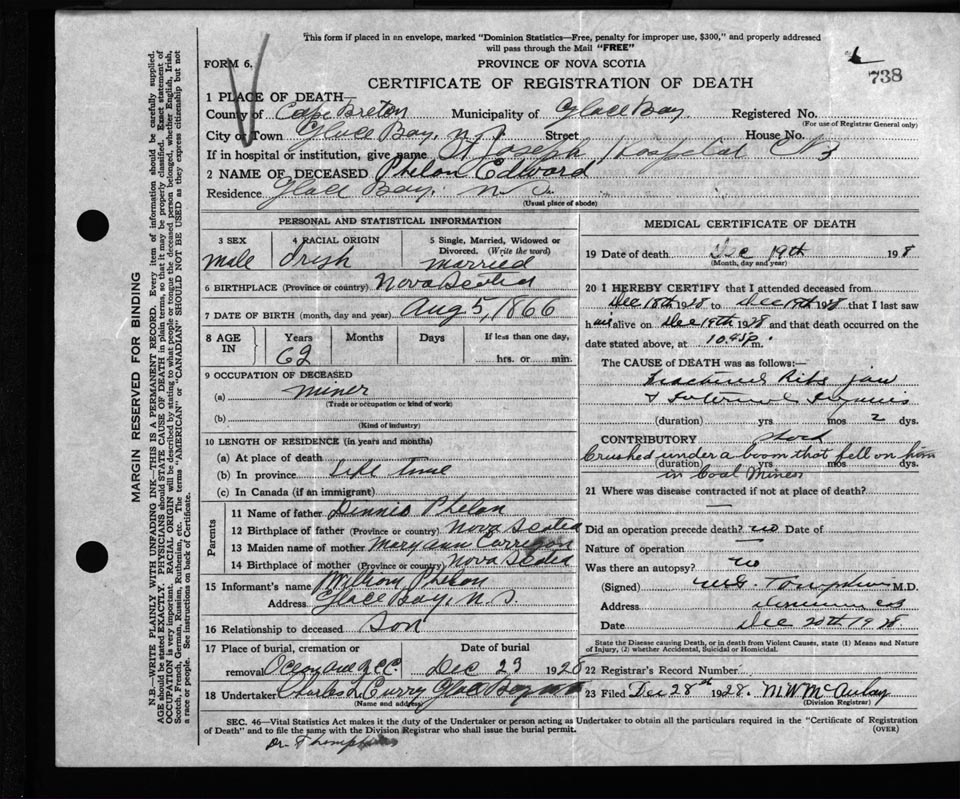 This form if placed in an envelope, marked "Dominion Statistics—Free, penalty for improper use, $300," and properly addressed
will pass through the Mail "FREE"
FORM 6.
PROVINCE OF NOVA SCOTIA
738
CERTIFICATE OF REGISTRATION OF DEATH
1 PLACE OF DEATH—
County of Cape Breton Municipality of Glace Bay Registered No.
(For use of Registrar General only)
City or Town Glace Bay, N.S. Street House No.
If in hospital or institution, give name St Joseph Hospital
2 NAME OF DECEASED Phelan Edward
Residence Glace Bay, N.S.
(Usual place of abode)
PERSONAL AND STATISTICAL INFORMATION
3 SEX 4 RACIAL ORIGIN 5 Single, Married, Widowed or
Divorced. (Write the word)
male Irish married
6 BIRTHPLACE (Province or country) Nova Scotia
7 DATE OF BIRTH (month, day and year) Aug 5, 1866
8 AGE IN Years Months Days If less than one day,
62 hrs. or min.
9 OCCUPATION OF DECEASED
(a) miner
(Trade or occupation or kind of work)
(b)
(Kind of industry)
10 LENGTH OF RESIDENCE (in years and months)
(a) At place of death
(b) In province Life time
(c) In Canada (if an immigrant)
Parents
11 Name of father Dennis Phelan
12 Birthplace of father (Province or country) Nova Scotia
13 Maiden name of mother Mary Ann Carrigan
14 Birthplace of mother (Province or country) Nova Scotia
15 Informant's name William Phelan
Address Glace Bay, N.S.
16 Relationship to deceased Son
17 Place of burial, cremation or Date of burial
removal Dec 23 1928
18 Undertaker Charles Curry Glace Bay
(Name and address)
MEDICAL CERTIFICATE OF DEATH
19 Date of death Dec 19th 1928
(Month, day and year)
20 I HEREBY CERTIFY that I attended deceased from
Dec 18th 1928 to Dec 19th 1928 that I last saw
him alive on Dec 19th 1928 and that death occurred on the
date stated above, at 10.45 p m.
The CAUSE OF DEATH was as follows:—
Fractured Ribs jaw
& Internal Injuries
(duration) yrs mos 2 dys.
CONTRIBUTORY Shock
Crushed under a boom that fell on him
(duration) yrs mos dys.
in Coal Mines
21 Where was disease contracted if not at place of death?
—
Did an operation precede death? no Date of
Nature of operation —
Was there an autopsy? no
(Signed) M.D.
Address
Date Dec 20th 1928
State the Disease causing Death, or in death from Violent Causes, state (1) Means and Nature
of Injury, (2) whether Accidental, Suicidal or Homicidal.
22 Registrar's Record Number
23 Filed Dec 28th 1928. M W McAulay
(Division Registrar)
SEC. 46—Vital Statistics Act makes it the duty of the Undertaker or person acting as Undertaker to obtain all the particulars required in the "Certificate of Registration
of Death" and to file the same with the Division Registrar who shall issue the burial permit.
(OVER)
Dr Thompkins
MARGIN RESERVED FOR BINDING
N.B.—WRITE PLAINLY WITH UNFADING INK—THIS IS A PERMANENT RECORD. Every item of information should be carefully supplied.
AGE should be stated EXACTLY. PHYSICIANS should STATE CAUSE OF DEATH in plain terms, so that it may be properly classified. Exact statement of
OCCUPATION is very important. RACIAL ORIGIN will be described by stating to what people or tongue the deceased person belonged, whether English, Irish,
Scotch, French, German, Russian, Ruthenian, etc. The terms "AMERICAN" or "CANADIAN" SHOULD NOT BE USED as they express citizenship but not
a race or people. See instructions on back of Certificate.